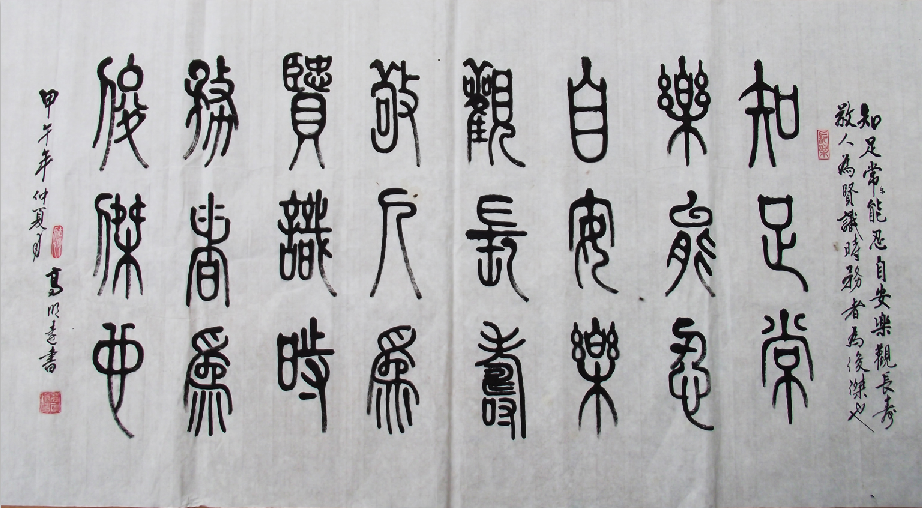 知足常〻能忍自安樂觀長壽
敬人為賢識時務者為俊傑也
知足常
樂能忍
自安樂
觀長壽
敬人為
賢識時
務者為
俊傑也
甲午年仲夏月
高明書